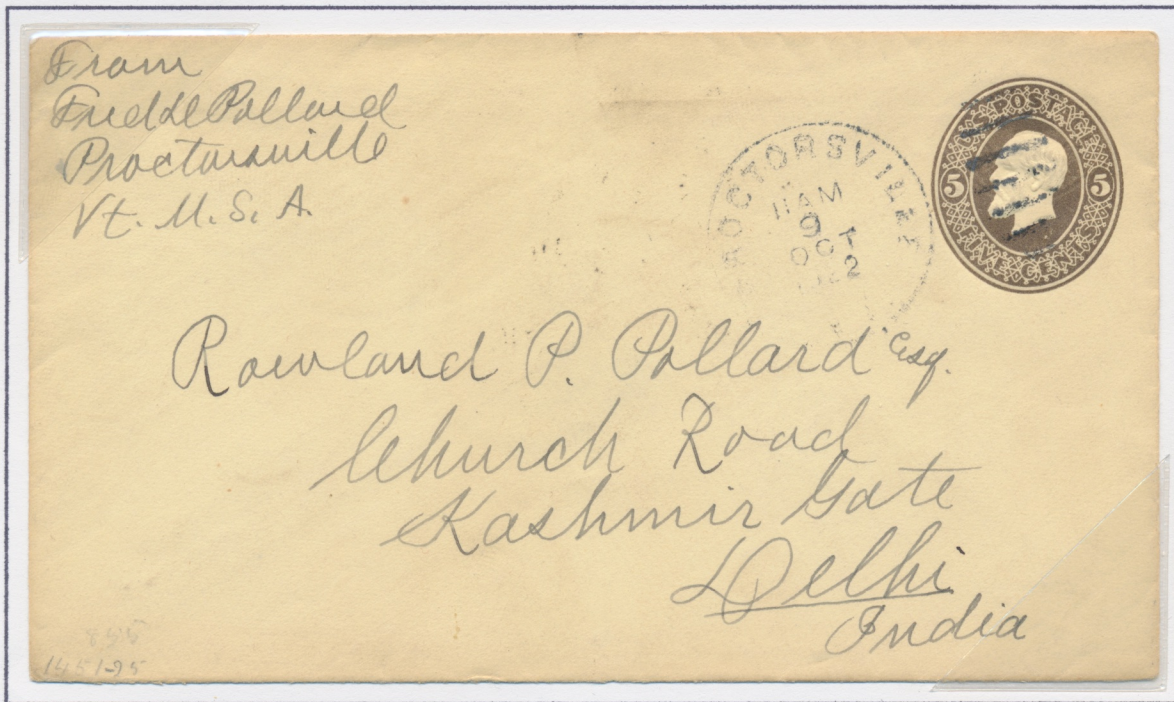 From
Fred L Pollard
Proctorsville
Vt. U. S. A.
PROCTORSVILLE
11 AM
9
OCT
U.S. POSTAGE
5 5
FIVE CENTS
Rowland P. Pollard Esq.
Church Road
Kashmir Gate
Delhi
India